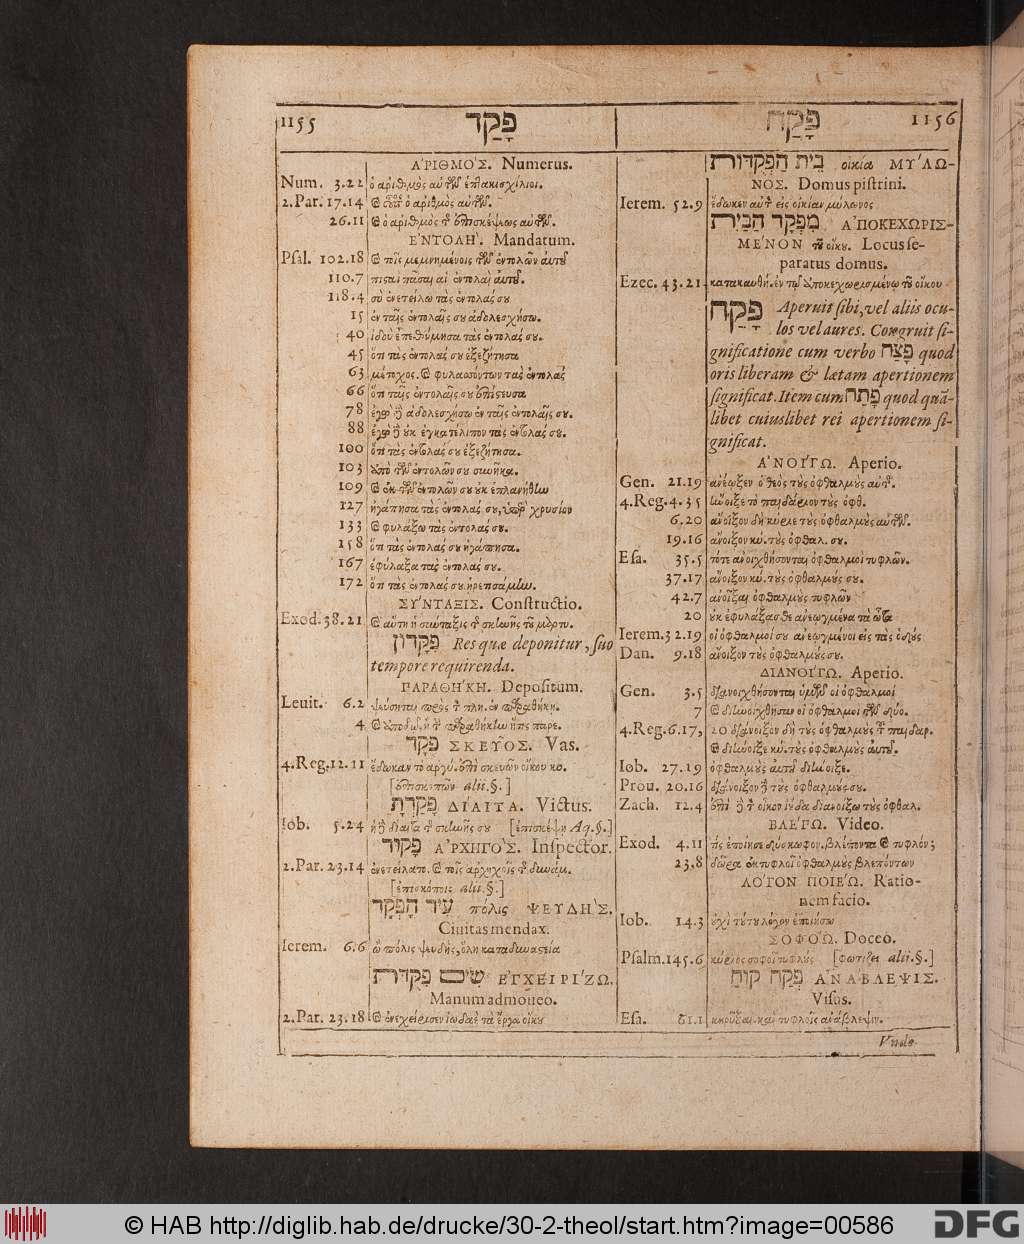 1155 פָּקַד
ἈΡΙΘΜΌΣ. Numerus.
Num. 3.22 ὁ ἀριθμὸς αὐτῶν ἑπτακισχίλιοι.
2.Par. 17.14 ὁ ἀριθμὸς αὐτῶν.
26.11 καὶ ὁ ἀριθμὸς τῆς ἐπισκέψεως αὐτῶν.
ἘΝΤΟΛΉ. Mandatum.
Psal. 102.18 καὶ τοῖς μεμνημένοις τῶν ἐντολῶν αὐτοῦ
110.7 πισταὶ πᾶσαι αἱ ἐντολαὶ αὐτοῦ.
118.4 σὺ ἐνετείλω τὰς ἐντολάς σου
15 ἐν ταῖς ἐντολαῖς σου ἀδολεσχήσω.
40 ἰδοὺ ἐπεθύμησα τὰς ἐντολάς σου.
45 ὅτι τὰς ἐντολάς σου ἐξεζήτησα
63 μέτοχος. καὶ φυλασσόντων τὰς ἐντολάς
66 ὅτι ταῖς ἐντολαῖς σου ἐπίστευσα
78 ἐγὼ δὲ ἀδολεσχήσω ἐν ταῖς ἐντολαῖς σου.
88 ἐγὼ δὲ οὐκ ἐγκατέλιπον τὰς ἐντολάς σου.
100 ὅτι τὰς ἐντολάς σου ἐξεζήτησα.
103 ἀπὸ τῶν ἐντολῶν σου συνῆκα.
109 καὶ ἐκ τῶν ἐντολῶν σου οὐκ ἐπλανήθην
127 ἠγάπησα τὰς ἐντολάς σου, ὑπὲρ χρυσίον
133 καὶ φυλάξω τὰς ἐντολάς σου.
158 ὅτι τὰς ἐντολάς σου ἠγάπησα.
167 ἐφύλαξα τὰς ἐντολάς σου.
172 ὅτι τὰς ἐντολάς σου ᾑρετισάμην.
ΣΎΝΤΑΞΙΣ. Constructio.
Exod. 38.21 καὶ αὕτη ἡ σύνταξις τῆς σκηνῆς τοῦ μαρτυ.
פִּקָּדוֹן Res quæ deponitur, suo
tempore requirenda.
ΠΑΡΑΘΉΚΗ. Depositum.
Leuit. 6.2 ψεύσηται πρὸς τὸν πλη. ἐν παραθήκῃ.
4 καὶ ἀποδῷ, ἢ τὴν παραθήκην ἥτις παρε.
פָּקַד ΣΚΕΥ͂ΟΣ. Vas.
4.Reg. 12.11 ἔδωκαν τὸ ἀργύ. ἐπὶ σκευῶν οἴκου κυ.
[ἐπισκοπῶν alii.§.]
פְּקֻדַּת ΔΊΑΙΤΑ. Victus.
Iob. 5.24 ἡ δὲ δίαιτα τῆς σκηνῆς σου [ἐπισκέψῃ Aq.§.]
פָּקוּד ἈΡΧΗΓΌΣ. Inspector.
2.Par. 23.14 ἐνετείλατο. καὶ τοῖς ἀρχηγοῖς τῆς δυνάμ.
[ἐπισκόποις alii.§.]
עִיר הָפְקַד πόλις ΨΕΥΔΉΣ.
Ciuitas mendax.
Ierem. 6.6 ὦ πόλις ψευδής, ὅλη καταδυναστεία
שִׂים פְּקֻדֹּת ἘΓΧΕΙΡΊΖΩ.
Manum admoueo.
2.Par. 23.18 καὶ ἐνεχείρισεν ἰωδαὲ τὰ ἔργα οἴκου
פָּקַח 1156
בֵּית הַפְּקֻדּוֹת οἰκία ΜΥΛΩ-
ΝΟΣ. Domus pistrini.
Ierem. 52.9 ἔδωκεν αὐτὸν εἰς οἰκίαν μύλωνος
מִפְקַד הַבַּיִת ἈΠΟΚΕΧΩΡΙΣ-
ΜΈΝΟΝ τοῦ οἴκου. Locus se-
paratus domus.
Ezec. 43.21 κατακαυθή. ἐν τῷ ἀποκεχωρισμένῳ τοῦ οἴκου
פָּקַח Aperuit sibi, vel aliis ocu-
los vel aures. Congruit si-
gnificatione cum verbo פָּצַח quod
oris liberam & lætam apertionem
significat. Item cum פָּתַח quod quā-
libet cuiuslibet rei apertionem si-
gnificat.
ἈΝΟΊΓΩ. Aperio.
Gen. 21.19 ἀνέῳξεν ὁ θεὸς τοὺς ὀφθαλμοὺς αὐτῆς.
4.Reg. 4.35 ἤνοιξε τὸ παιδάριον τοὺς ὀφθ.
6.20 ἄνοιξον δὴ κύριε τοὺς ὀφθαλμοὺς αὐτῶν.
19.16 ἄνοιξον κύ. τοὺς ὀφθαλ. σου.
Esa. 35.5 τότε ἀνοιχθήσονται ὀφθαλμοὶ τυφλῶν.
37.17 ἄνοιξον κύ. τοὺς ὀφθαλμούς σου.
42.7 ἀνοῖξαι ὀφθαλμοὺς τυφλῶν
20 οὐκ ἐφυλάξασθε ἀνεῳγμένα τὰ ὦτα
Ierem. 32.19 οἱ ὀφθαλμοί σου ἀνεῳγμένοι εἰς τὰς ὁδοὺς
Dan. 9.18 ἄνοιξον τοὺς ὀφθαλμούς σου.
ΔΙΑΝΟΊΓΩ. Aperio.
Gen. 3.5 διανοιχθήσονται ὑμῶν οἱ ὀφθαλμοὶ
7 καὶ διηνοίχθησαν οἱ ὀφθαλμοὶ τῶν δύο.
4.Reg. 6.17, 20 διάνοιξον δὴ τοὺς ὀφθαλμοὺς τοῦ παιδαρ.
καὶ διήνοιξε κύ. τοὺς ὀφθαλμοὺς αὐτοῦ.
Iob. 27.19 ὀφθαλμοὺς αὐτοῦ διήνοιξε.
Prou. 20.16 διάνοιξον δὲ τοὺς ὀφθαλμούς σου.
Zach. 12.4 ἐπὶ δὲ τὸν οἶκον ἰούδα διανοίξω τοὺς ὀφθαλ.
ΒΛΈΠΩ. Video.
Exod. 4.11 τίς ἐποίησε δύσκωφον. βλέποντα καὶ τυφλόν;
23.8 δῶρα ἐκτυφλοῖ ὀφθαλμοὺς βλεπόντων
ΛΌΓΟΝ ΠΟΙΈΩ. Ratio-
nem facio.
Iob. 14.3 οὐχὶ τούτου λόγον ἐποιήσω
ΣΟΦΌΩ. Doceo.
Psalm. 145.6 κύριος σοφοῖ τυφλοὺς [φωτίζει alii.§.]
פְּקַח קוֹחַ ἈΝΆΒΛΕΨΙΣ.
Visus.
Esa. 61.1 κηρῦξαι. καὶ τυφλοῖς ἀνάβλεψιν.
Vnde
© HAB http://diglib.hab.de/drucke/30-2-theol/start.htm?image=00586
DFG